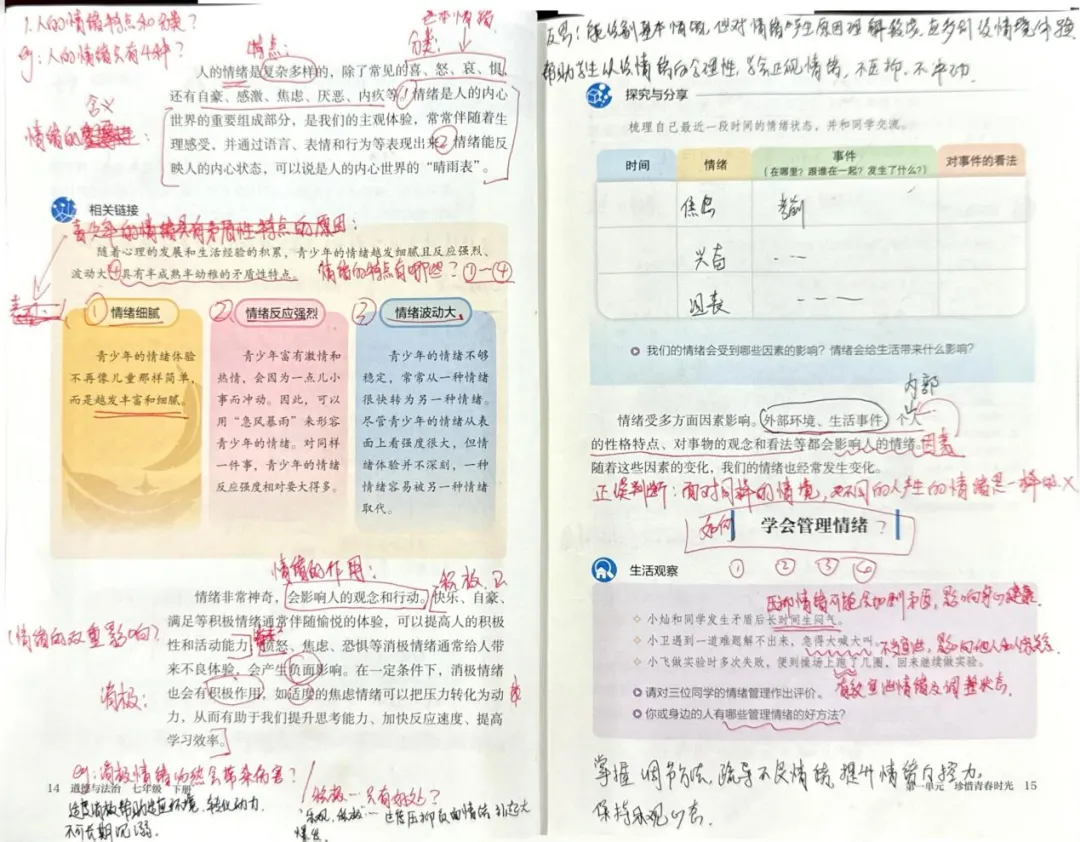 1.人的情绪特点和分类？
eg：人的情绪只有4种？
特点：
基本情绪
分类：
人的情绪是复杂多样的，除了常见的喜、怒、哀、惧，
还有自豪、感激、焦虑、厌恶、内疚等。①情绪是人的内心
含义
情绪的：
世界的重要组成部分，是我们的主观体验，常常伴随着生
理感受，并通过语言、表情和行为等表现出来。②情绪能反
映人的内心状态，可以说是人的内心世界的“晴雨表”。
相关链接
青少年的情绪具有矛盾性特点的原因：
随着心理的发展和生活经验的积累，青少年的情绪越发细腻且反应强烈、
波动大，④具有半成熟半幼稚的矛盾性特点。
情绪的特点有哪些？①—④
① 情绪细腻
青少年的情绪体验
不再像儿童那样简单，
而是越发丰富和细腻。
② 情绪反应强烈
青少年富有激情和
热情，会因为一点儿小
事而冲动。因此，可以
用“急风暴雨”来形容
青少年的情绪。对同样
一件事，青少年的情绪
反应强度相对要大得多。
③ 情绪波动大
青少年的情绪不够
稳定，常常从一种情绪
很快转为另一种情绪。
尽管青少年的情绪从表
面上看强度很大，但情
绪体验并不深刻，一种
情绪容易被另一种情绪
取代。
情绪的作用：
积极：正
情绪非常神奇，会影响人的观念和行动。快乐、自豪、
满足等积极情绪通常伴随愉悦的体验，可以提高人的积极
（情绪的双重影响？
性和活动能力；愤怒、焦虑、恐惧等消极情绪通常给人带
来不良体验，会产生负面影响。在一定条件下，消极情绪
消极：
也会有积极作用，如适度的焦虑情绪可以把压力转化为动
力，从而有助于我们提升思考能力、加快反应速度、提高
学习效率。
eg：消极情绪必然会带来伤害？
14 道德与法治 七年级 下册
适度消极帮助适应环境，转化动力.
不可长期沉溺.
积极一只有好处？
反思：能识别基本情绪，但对情绪产生原因理解较浅，应多创设情境体验
帮助学生认识情绪的合理性，学会正视情绪，不压抑，不冲动.
探究与分享
梳理自己最近一段时间的情绪状态，并和同学交流。
时间 情绪 事件 对事件的看法
（在哪里？跟谁在一起？发生了什么？）
焦虑 考前
兴奋
沮丧
我们的情绪会受到哪些因素的影响？情绪会给生活带来什么影响？
内部
情绪受多方面因素影响。外部环境、生活事件、个人
的性格特点、对事物的观念和看法等都会影响人的情绪。因素
随着这些因素的变化，我们的情绪也经常发生变化。
正误判断：面对同样的情境，不同的人产生的情绪是一样的.X
如何 学会管理情绪？
生活观察
① ② ③ ④
小灿和同学发生矛盾后长时间生闷气。
小卫遇到一道难题解不出来，急得大喊大叫。
小飞做实验时多次失败，便到操场上跑了几圈，回来继续做实验。
有效宣泄情绪及调整状态.
请对三位同学的情绪管理作出评价。
你或身边的人有哪些管理情绪的好方法？
掌握调节方法，疏导不良情绪，提升情绪自控力，
第一单元 珍惜青春时光 15
保持乐观心态.